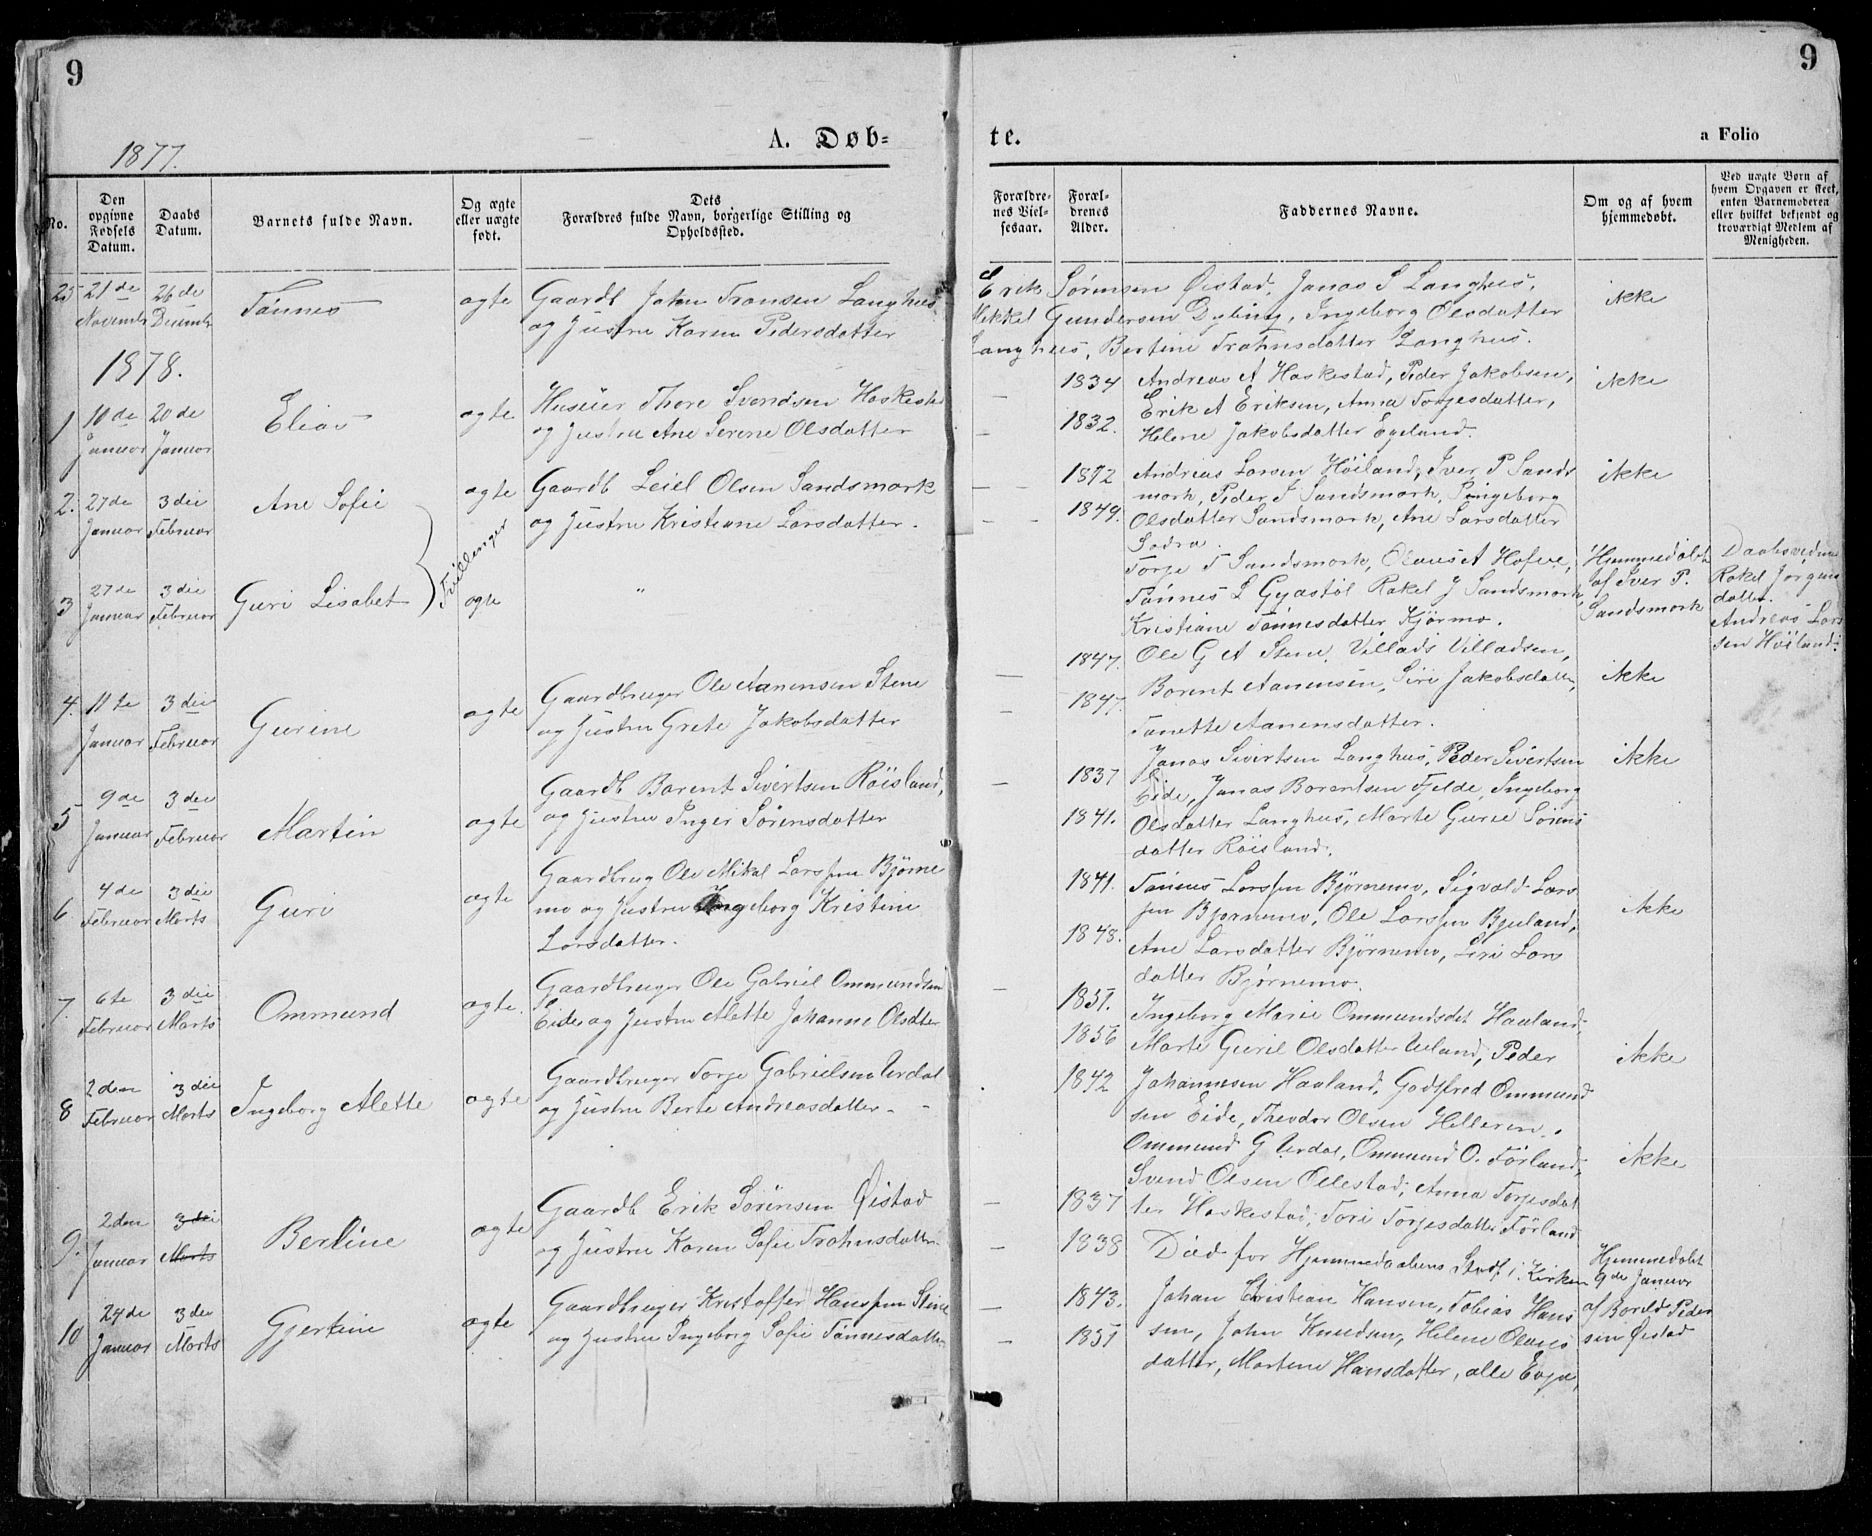 9
9
1877.
A. Døb=
te.
a Folio
No.
Den opgivne Fødsels Datum.
Daabs Datum.
Barnets fulde Navn.
Og ægte eller uægte født.
Dets Forældres fulde Navn, borgerlige Stilling og Opholdssted.
Forældrenes Vielsesaar.
Forældrenes Alder.
Faddernes Navne.
Om og af hvem hjemmedøbt.
Ved uægte Børn af hvem Opgaven er skeet, enten Barnemoderen eller hvilket bekjendt og troværdigt Medlem af Menigheden.
25 21de Novembr 26de Decembr Tønnes ægte Gaardb Johan Tronsen Langhus
og Hustru Karen Pedersdatter
Erik Sørensen Øistad, Jonas S Langhus,
Mekkel Gundersen Dybing, Ingeborg Olsdatter
Langhus, Bertine Trohnsdatter Langhus.
ikke
1878.
1 10de Januar 20de Januar Elias ægte Huseier Thore Svendsen Haskestad
og Hustru Ane Serene Olsdatter
1834
1832.
Andreas A Haskestad, Peder Jakobsen,
Erik A Eriksen, Anna Torjesdatter,
Helene Jakobsdatter Egeland.
ikke
2. 27de Januar 3die Februar Ane Sofie ægte Gaardb Leiel Olsen Sandsmark
og Hustru Kristiane Larsdatter.
Tvillinger
1849.
Andreas Larsen Høiland, Iver P Sands
mark, Peder I Sandsmark, Ingeborg
Olsdatter Sandsmark, Ane Larsdatter
Sodra.
ikke
3 27de Januar 3die Februar Guri Lisabet ægte "
Torje T Sandsmark, Olaus A Hofve,
Tønnes L Gydstøl Rakel J Sandsmark,
Kristiane Tønnesdatter Kjørmo.
Hjemmedøbt
af Iver P.
Sandsmark
Daabsvidne
Rakel Jørgens
datter.
Andreas Lar
sen Høiland.
4. 11te Januar 3die Februar Gurine ægte Gaardbruger Ole Aanensen Stene
og Hustru Grete Jakobsdatter
1847.
1847.
Ole G A Stene, Villads Villadsen,
Borent Aanensen, Siri Jakobsdatter,
Tanette Aanensdatter.
ikke
5 9de Januar 3die Februar Martin ægte Gaardb Barent Sivertsen Røisland,
og Hustru Inger Sørensdatter
1837
1841.
Jonas Sivertsen Langhus, Peder Sivertsen
Eide, Jonas Borentsen Fjelde, Ingeborg
Olsdatter Langhus, Marte Gurie Sørens
datter Røisland.
ikke
6 4de Februar 3die Marts Guri ægte Gaardbrug Ole Mikal Larssen Bjørne
mo og Hustru Ingeborg Kristine
Larsdatter.
1841.
1848.
Tønnes Larssen Bjørnemo, Sigvald Lars
sen Bjørnemo, Ole Larssen Bjuland,
Ane Larsdatter Bjørnemo, Siri Lars
datter Bjørnemo.
ikke
7. 6te Februar 3die Marts Ommund ægte. Gaardbruger Ole Gabriel Ommundsen
Eide og Hustru Alette Johanne Olsdtter
1851.
1856
Ingeborg Marie Ommundsdt Haaland,
Marte Guril Olsdatter Ueland, Peder
Johannesen Haaland, Godtfred Ommund
sen Eide, Theodor Olsen Helleren.
ikke
8 2den Februar 3die Marts Ingeborg Alette ægte Gaardbruger Torje Gabrielsen Urdal
og Hustru Berte Andreasdatter - -
1842
1837
Ommund G Urdal, Ommund O. Førland,
Svend Olsen Ollestad, Anna Torjesdat
ter Haskestad, Tori Torjesdatter Førland
ikke
9. 2den Januar 3die Marts Bertine ægte Gaardb Erik Sørensen Øistad
og Hustru Karen Sofie Trohnsdatter
1838
Død før Hjemmedaabens Stadf. i Kirken
Hjemmedøbt
9de Januar
af Borild Peder
sen Øistad
10 24de Januar 3die Marts Gjertine ægte Gaardbruger Kristoffer Hanssen Stene
og Hustru Ingeborg Sofie Tønnesdatter
1843.
1851
Johan Cristian Hansen, Tobias Hans
sen, John Knudsen, Helene Olaves
datter, Martine Hansdatter, alle Evje,